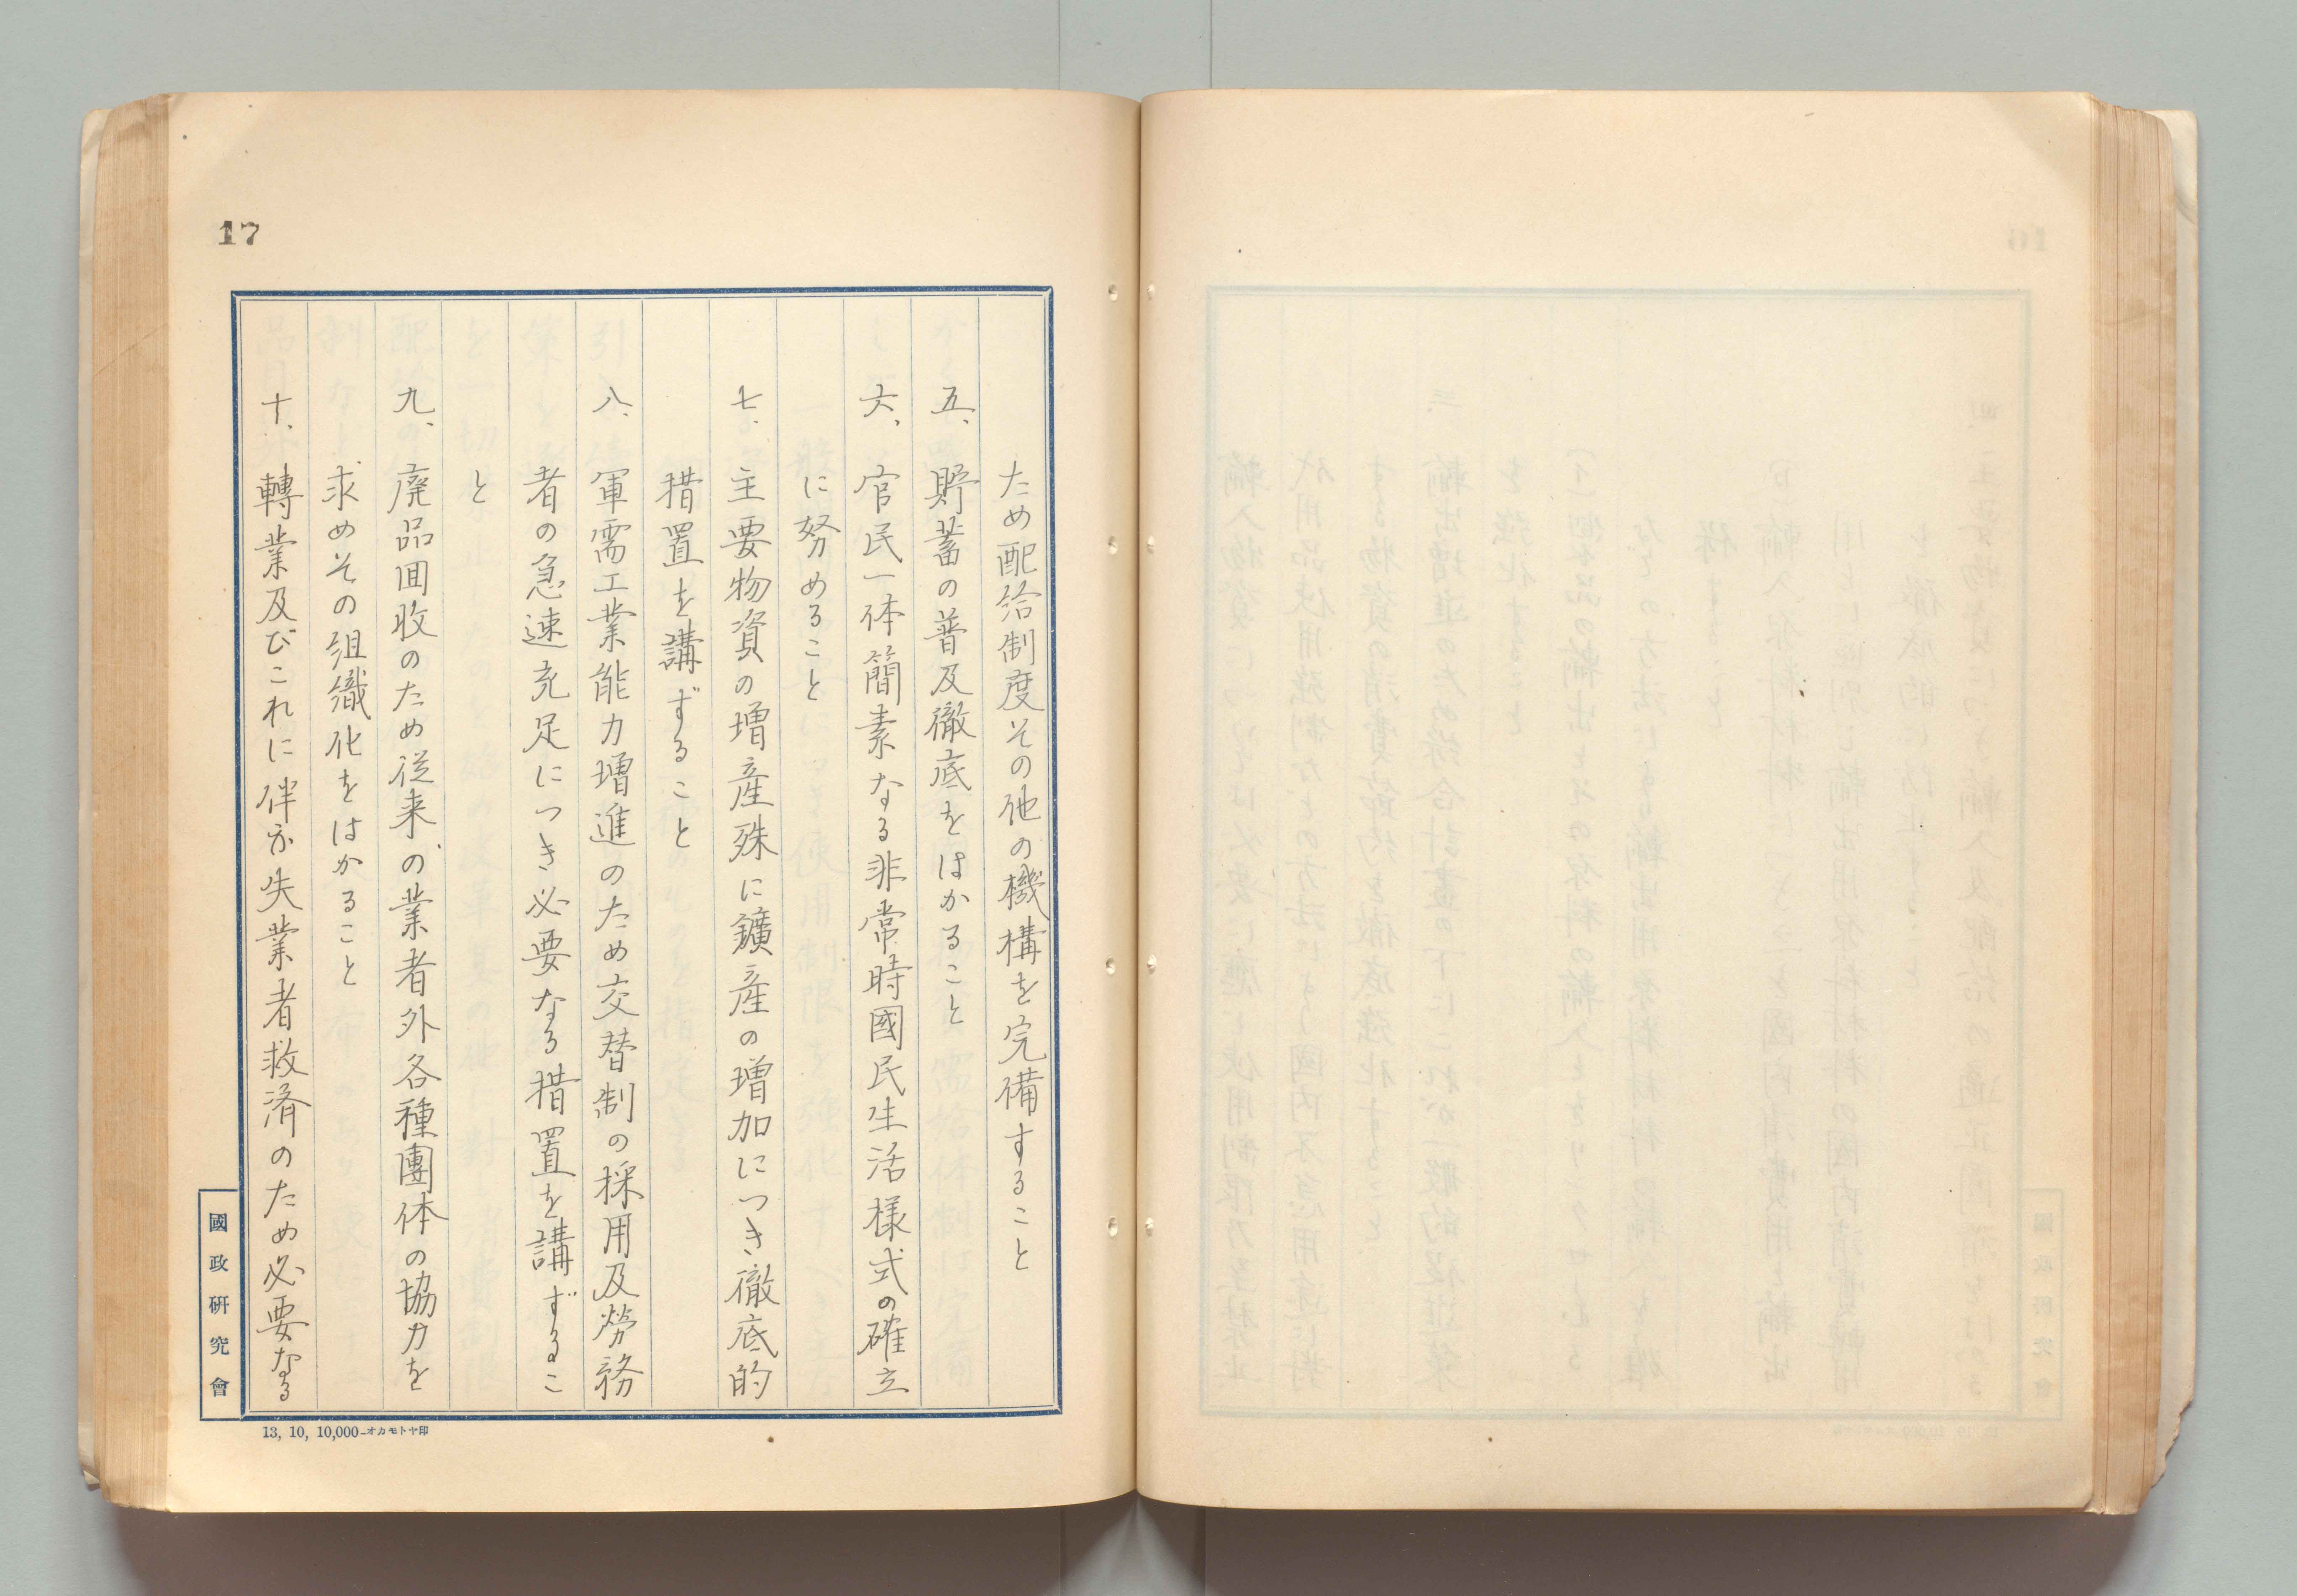 17
ため配給制度その他の機構を完備すること
五、貯蓄の普及徹底をはかること
六、官民一体簡素なる非常時國民生活様式の確立
に努めること
七、主要物資の増産殊に鑛産の増加につき徹底的
措置を講ずること
八、軍需工業能力増進のため交替制の採用及勞務
者の急速充足につき必要なる措置を講ずるこ
と
九、廃品囬收のため従来の業者外各種團体の協力を
求めその組織化をはかること
十、轉業及びこれに伴ふ失業者救済のため必要なる
國政研究會
13, 10, 10,000—オカモトヤ印